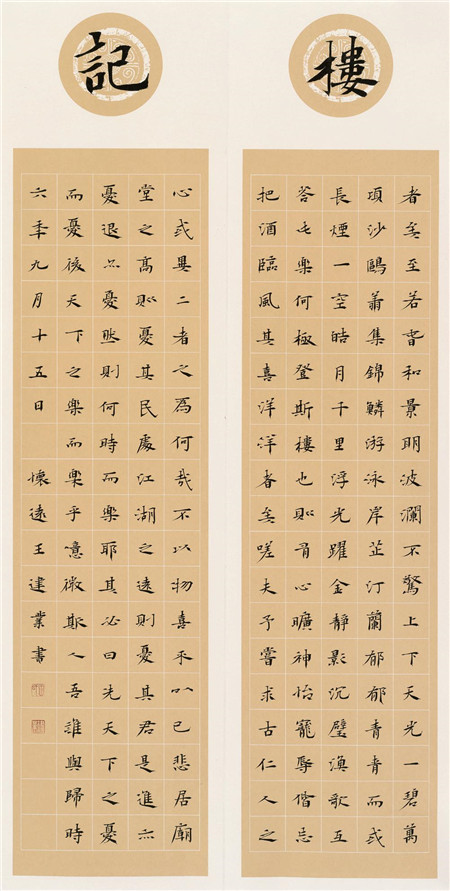 樓
者矣至若春和景明波瀾不驚上下天光一碧萬
頃沙鷗翔集錦鱗游泳岸芷汀蘭郁郁青青而或
長煙一空皓月千里浮光躍金靜影沉璧漁歌互
答此樂何極登斯樓也則有心曠神怡寵辱偕忘
把酒臨風其喜洋洋者矣嗟夫予嘗求古仁人之
記
心或異二者之為何哉不以物喜不以己悲居廟
堂之高則憂其民處江湖之遠則憂其君是進亦
憂退亦憂然則何時而樂耶其必曰先天下之憂
而憂後天下之樂而樂乎噫微斯人吾誰與歸時
六年九月十五日 懷遠王建業書